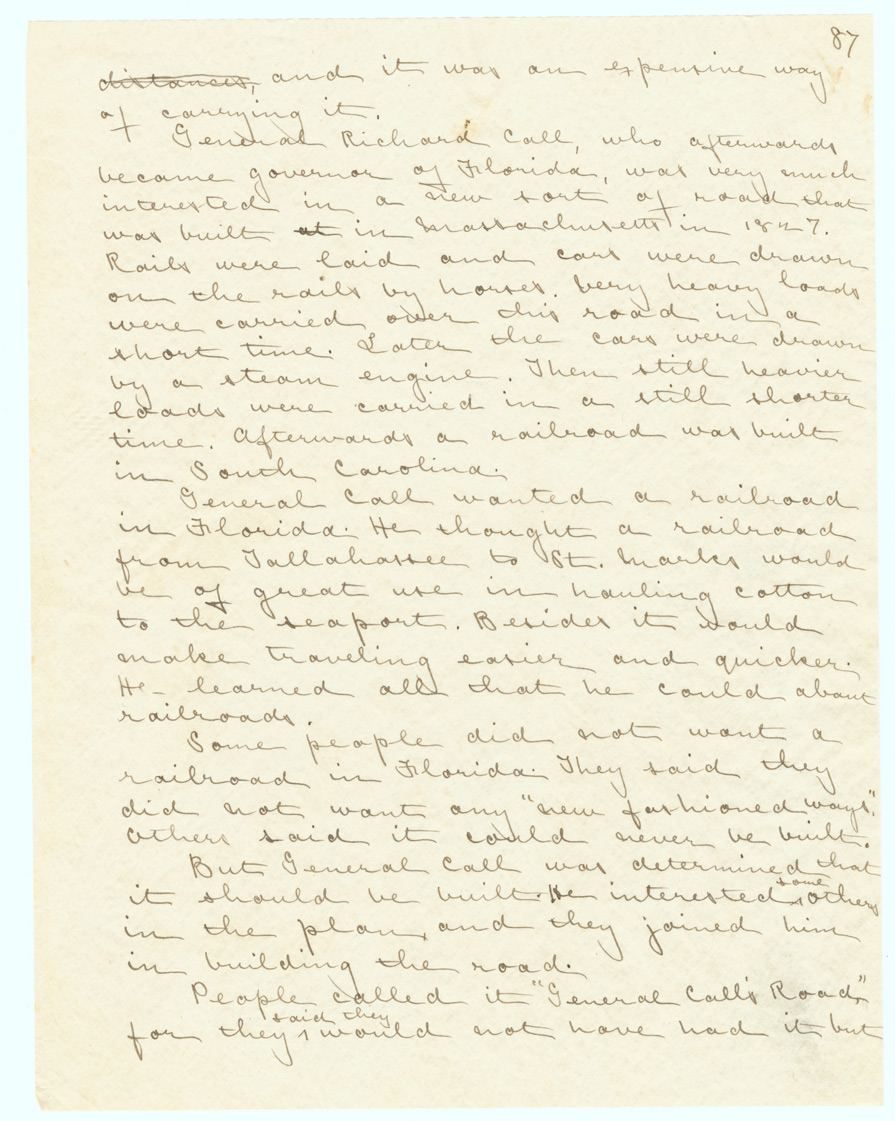 87
distances, and it was an expensive way
of carrying it.
General Richard Call, who afterwards
became governor of Florida, was very much
interested in a new sort of road that
was built at in Massachusetts in 1827.
Rails were laid and cars were drawn
on the rails by horses. Very heavy loads
were carried over this road in a
short time. Later the cars were drawn
by a steam engine. Then still heavier
loads were carried in a still shorter
time. Afterwards a railroad was built
in South Carolina.
General Call wanted a railroad
in Florida. He thought a railroad
from Tallahassee to St. Marks would
be of great use in hauling cotton
to the seaport. Besides it would
make traveling easier and quicker.
He learned all that he could about
railroads.
Some people did not want a
railroad in Florida. They said they
did not want any "new fashioned ways".
Others said it could never be built.
But General Call was determined that
it should be built. He interested some others
in the plan, and they joined him
in building the road.
People called it "General Call's Road,"
for they said they would not have had it but